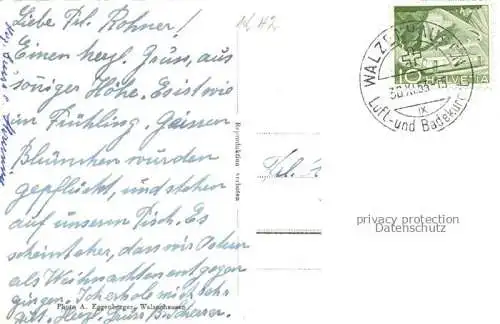 Liebe Frl. Rohner!
Einen herzl. Gruss, aus
sonniger Höhe. Es ist wie
im Frühling. Gaissen
Blümchen wurden
gepflückt, und stehen
auf unserem Tisch. Es
scheint eher, dass wir Ostern
als Weihnachten entgegen
gingen. Ich erhole mich sehr
gut. Herzl. Gruss
Photo A. Eggenberger, Walzenhausen
Reproduktion verboten
HELVETIA
10
WALZENHAUSEN
30.XI.53
IX
Luft- und Badekurort
Frl.
privacy protection
Datenschutz